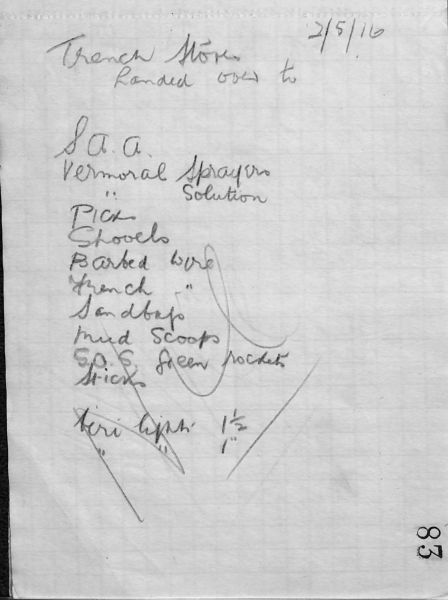 2/5/16
Trench Stores
handed over to
S a. a.
Vermoral Sprayers
" Solution
Picks
Shovels
Barbed wire
French "
Sandbags
Mud Scoops
S.O.S. green rockets
Sticks
Veri lights 1 1/2
" " 1"
83